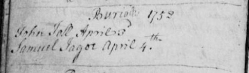 Burials 1752
John Tall April 2d
Samuel Jagot April 4th